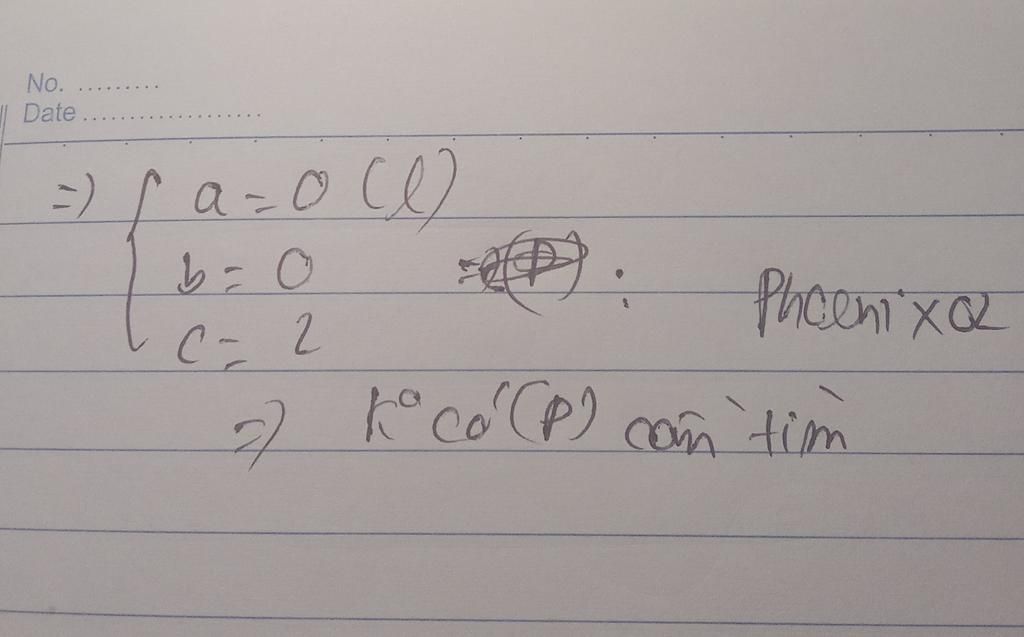 No. .........
Date ...................
=> { a = 0 (l)
b = 0 :
c = 2
Phoenix
=> k° có (P) cần tìm